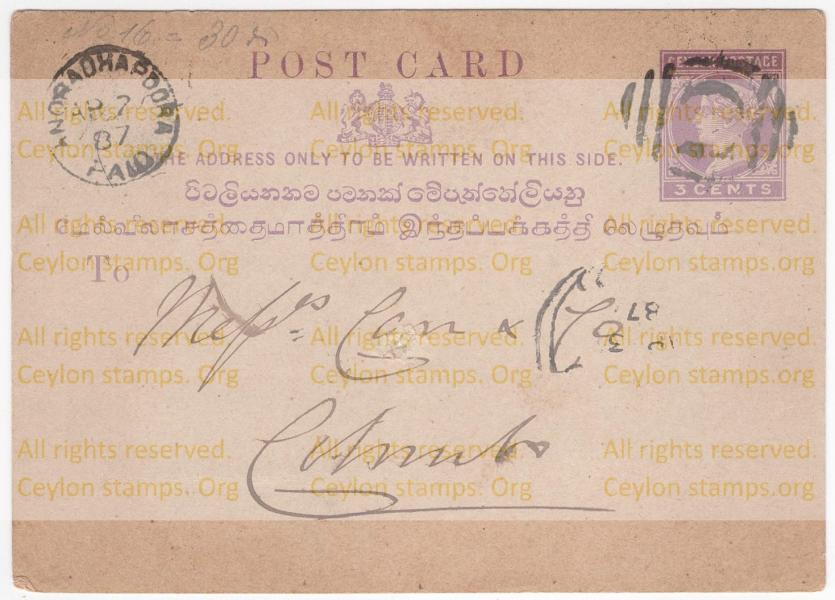 No 16 = 30
POST CARD
CEYLON POSTAGE
3 CENTS
ANORADHAPOORA
AP 7
87
PAID
THE ADDRESS ONLY TO BE WRITTEN ON THIS SIDE.
පිටලියනතම පමනක් මේපත්තේලියනු
மேல்விலாசத்தைமாத்திரம் இந்தப்பக்கத்தி லெழுதவும்
To
Messrs Carr & Co
87
Colombo
All rights reserved. All rights reserved. All rights reserved.
Ceylon stamps. Org Ceylon stamps. Org Ceylon stamps. Org
All rights reserved. All rights reserved. All rights reserved.
Ceylon stamps. Org Ceylon stamps. Org Ceylon stamps. Org
All rights reserved. All rights reserved. All rights reserved.
Ceylon stamps. Org Ceylon stamps. Org Ceylon stamps. Org
All rights reserved. All rights reserved. All rights reserved.
Ceylon stamps. Org Ceylon stamps. Org Ceylon stamps. Org